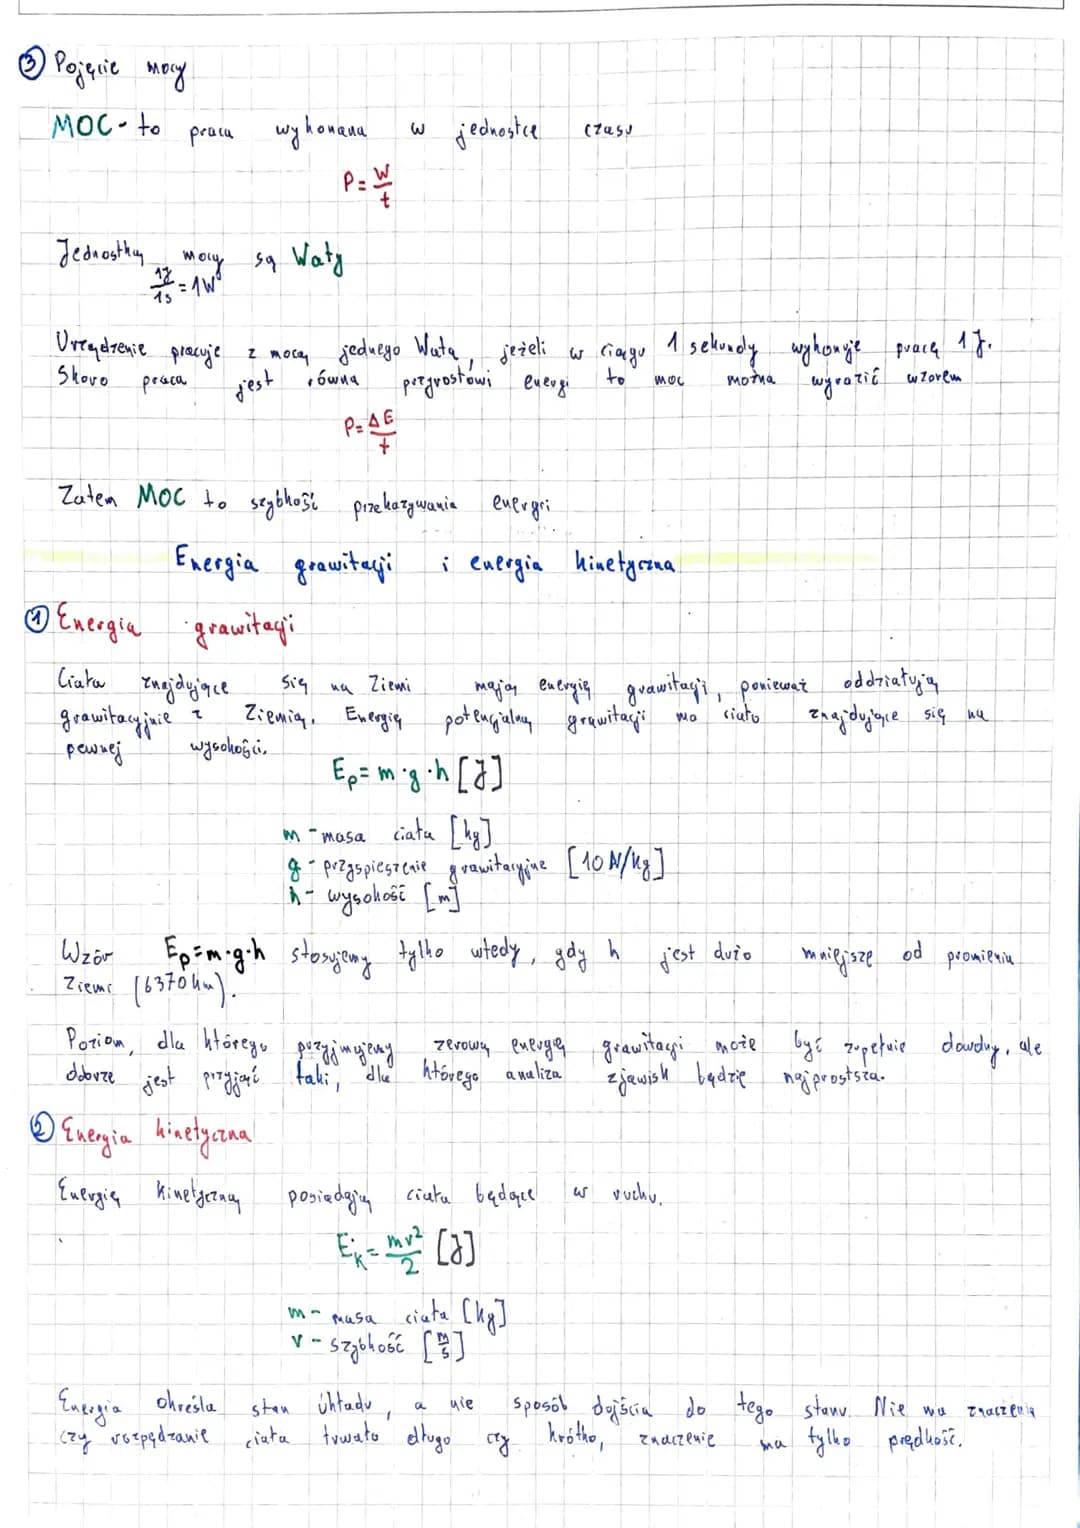 3 Pojęcie mocy
MOC - to praca wykonana w jednostce czasu
P = W/t
Jednostką mocy są Waty
1J/1s = 1W
Urządzenie pracuje z mocą jednego Wata, jeżeli w ciągu 1 sekundy wykonuje pracę 1J.
Skoro praca jest równa przyrostowi energi to moc można wyrazić wzorem
P = ΔE/t
Zatem MOC to szybkość przekazywania energii
Energia grawitacji i energia kinetyczna
1 Energia grawitacji
Ciała znajdujące się na Ziemi mają energię grawitacji, ponieważ oddziałują
grawitacyjnie z Ziemią. Energię potencjalną grawitacji ma ciało znajdujące się na
pewnej wysokości.
Ep = m·g·h [J]
m - masa ciała [kg]
g - przyspieszenie grawitacyjne [10 N/kg]
h - wysokość [m]
Wzór Ep = m·g·h stosujemy tylko wtedy, gdy h jest dużo mniejsze od promienia
Ziemi (6370 km).
Poziom, dla którego przyjmujemy zerową energię grawitacji może być zupełnie dowolny, ale
dobrze jest przyjąć taki, dla którego analiza zjawisk będzie najprostsza.
2 Energia kinetyczna
Energię kinetyczną posiadają ciała będące w ruchu.
Ek = mv²/2 [J]
m - masa ciała [kg]
v - szybkość [m/s]
Energia określa stan układu, a nie sposób dojścia do tego stanu. Nie ma znaczenia
czy rozpędzanie ciała trwało długo czy krótko, znaczenie ma tylko prędkość.